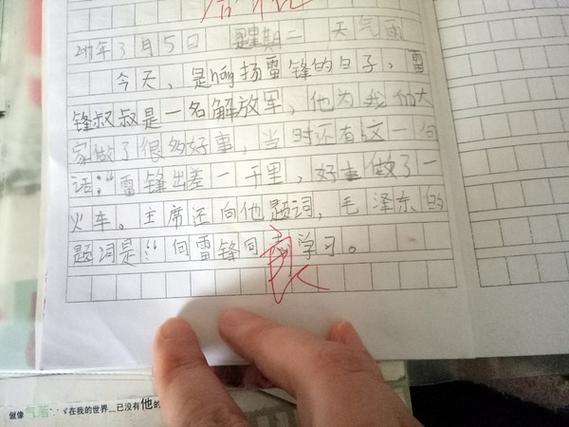 年3月5日 星期二 天气雨
今天,是hong扬雷锋的日子,雷
锋叔叔是一名解放军,他为我们大
家做了很多好事,当时还有这一句
话:“雷锋出差一千里,好事做了一
火车。主席还向他题词,毛泽东的
题词是“向雷锋同志学习。
做像气落
在我的世界 已没有他的